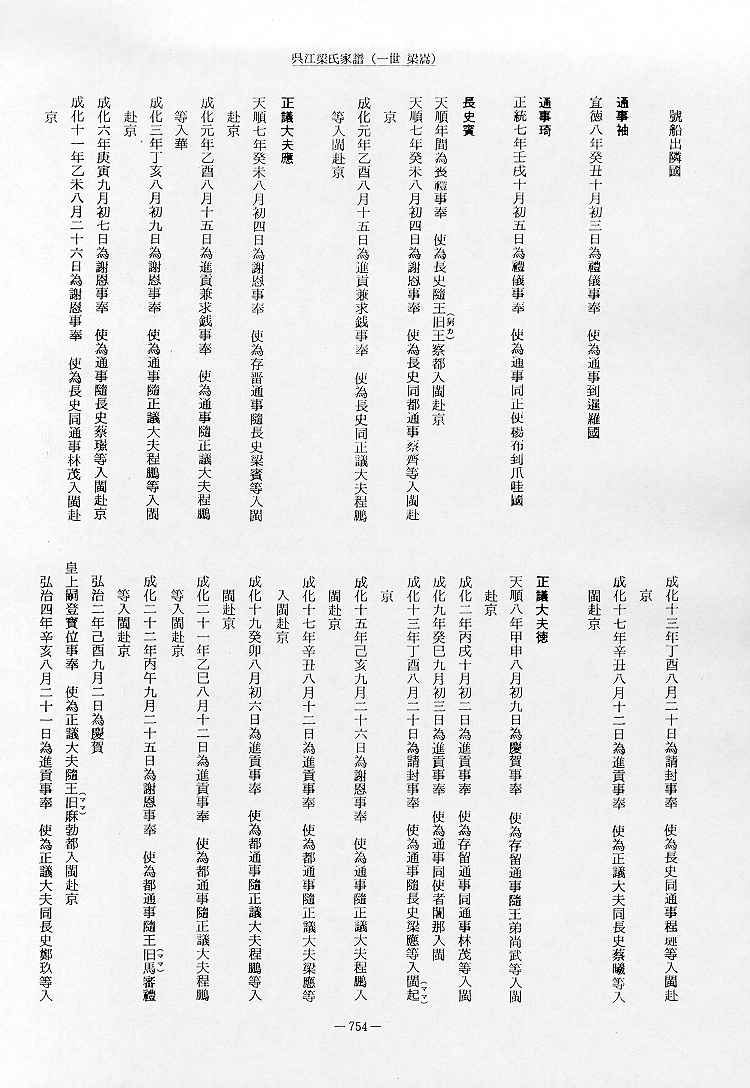 呉江梁氏家譜(一世 梁嵩)
號船出隣國
通事袖
宣徳八年癸丑十月初三日為禮儀事奉 使為通事到暹羅國
通事琦
正統七年壬戌十月初五日為禮儀事奉 使為通事同正使楊布到爪哇國
長史賓
天順年間為喪禮事奉 使為長史隨王旧(舅カ)王察都入閩赴京
天順七年癸未八月初四日為謝恩事奉 使為長史同都通事蔡齊等入閩赴
京
成化元年乙酉八月十五日為進貢兼求銭事奉 使為長史同正議大夫程鵬
等入閩赴京
正議大夫應
天順七年癸未八月初四日為謝恩事奉 使為存晋通事隨長史梁賓等入閩
赴京
成化元年乙酉八月十五日為進貢兼求銭事奉 使為通事隨正議大夫程鵬
等入華
成化三年丁亥八月初九日為謝恩事奉 使為通事隨正議大夫程鵬等入閩
赴京
成化六年庚寅九月初七日為謝恩事奉 使為通事隨長史蔡璟等入閩赴京
成化十一年乙未八月二十六日為謝恩事奉 使為長史同通事林茂入閩赴
京
成化十三年丁酉八月二十日為請封事奉 使為長史同通事程等入閩赴
京
成化十七年辛丑八月十二日為進貢事奉 使為正議大夫同長史蔡曦等入
閩赴京
正議大夫徳
天順八年甲申八月初九日為慶賀事奉 使為存留通事隨王弟尚武等入閩
赴京
成化二年丙戌十月初二日為進貢事奉 使為存留通事同通事林茂等入閩
成化九年癸巳九月初三日為進貢事奉 使為通事同使者闍那入閩
成化十三年丁酉八月二十日為請封事奉 使為通事隨長史梁應等入閩起(ママ)
京
成化十五年己亥九月二十六日為謝恩事奉 使為通事隨正議大夫程鵬入
閩赴京
成化十七年辛丑八月十二日為進貢事奉 使為都通事隨正議大夫梁應等
入閩赴京
成化十九癸卯八月初六日為進貢事奉 使為都通事隨正議大夫程鵬等入
閩赴京
成化二十一年乙巳八月十二日為進貢事奉 使為都通事隨正議大夫程鵬
等入閩赴京
成化二十二年丙午九月二十五日為謝恩事奉 使為都通事隨王旧(ママ)馬審禮
等入閩赴京
弘治二年己酉九月二日為慶賀
皇上嗣登寶位事奉 使為正議大夫隨王旧(ママ)麻勃都入閩赴京
弘治四年辛亥八月二十一日為進貢事奉 使為正議大夫同長史鄭玖等入
—754—